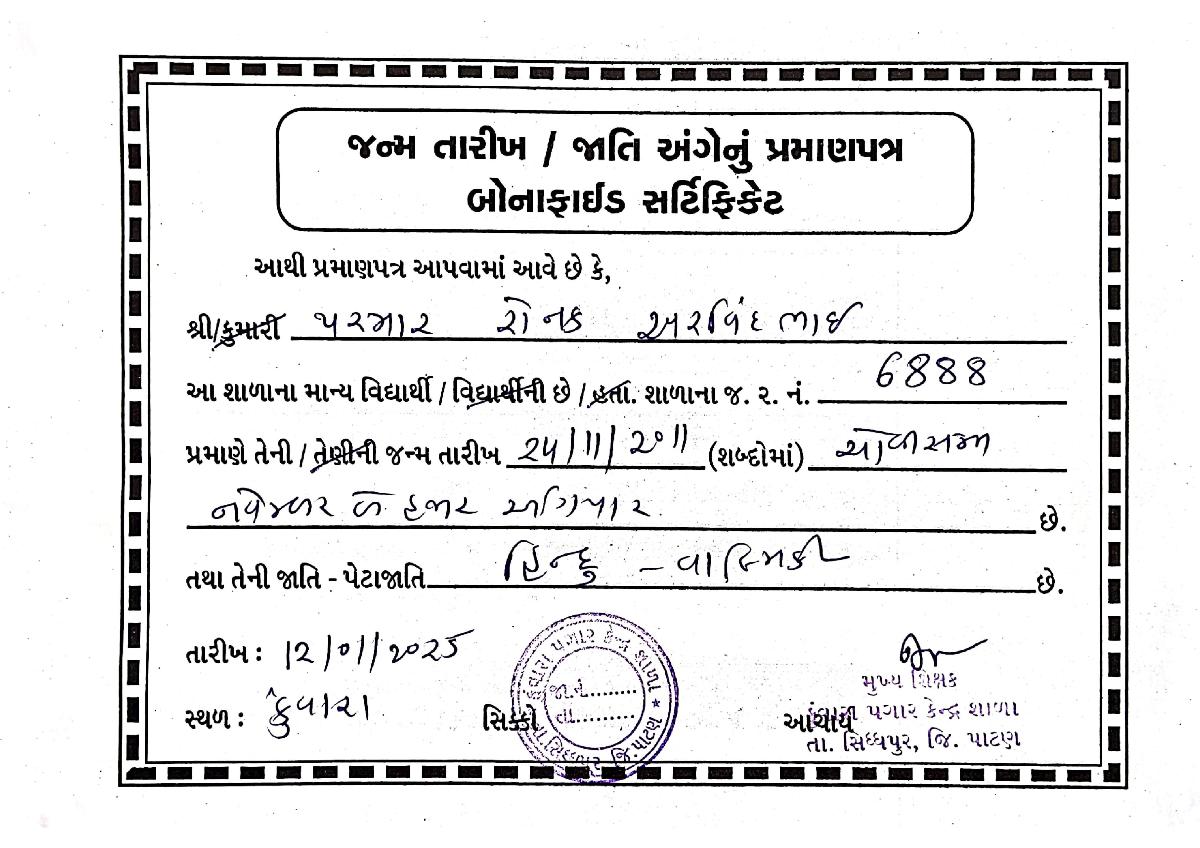 જન્મ તારીખ / જાતિ અંગેનું પ્રમાણપત્ર
બોનાફાઈડ સર્ટિફિકેટ
આથી પ્રમાણપત્ર આપવામાં આવે છે કે,
શ્રી/કુમારી પરમાર રોનક અરવિંદભાઇ
આ શાળાના માન્ય વિદ્યાર્થી / વિદ્યાર્થીની છે / હતા. શાળાના જ. ર. નં. 6888
પ્રમાણે તેની / તેણીની જન્મ તારીખ ૨૫/૧૧/૨૦૧૧ (શબ્દોમાં)
નવેમ્બર બે હજાર અગિયાર છે.
તથા તેની જાતિ - પેટાજાતિ હિન્દુ - વાલ્મિકી છે.
તારીખ : 12/01/2025
સ્થળ : કુંવારા
સિક્કો
કુંવારા પગાર કેન્દ્ર શાળા
જા.નં.........
તા..........
સિધ્ધપુર જિ. પાટણ
મુખ્ય શિક્ષક
આચાર્ય
પગાર કેન્દ્ર શાળા
તા. સિધ્ધપુર, જિ. પાટણ